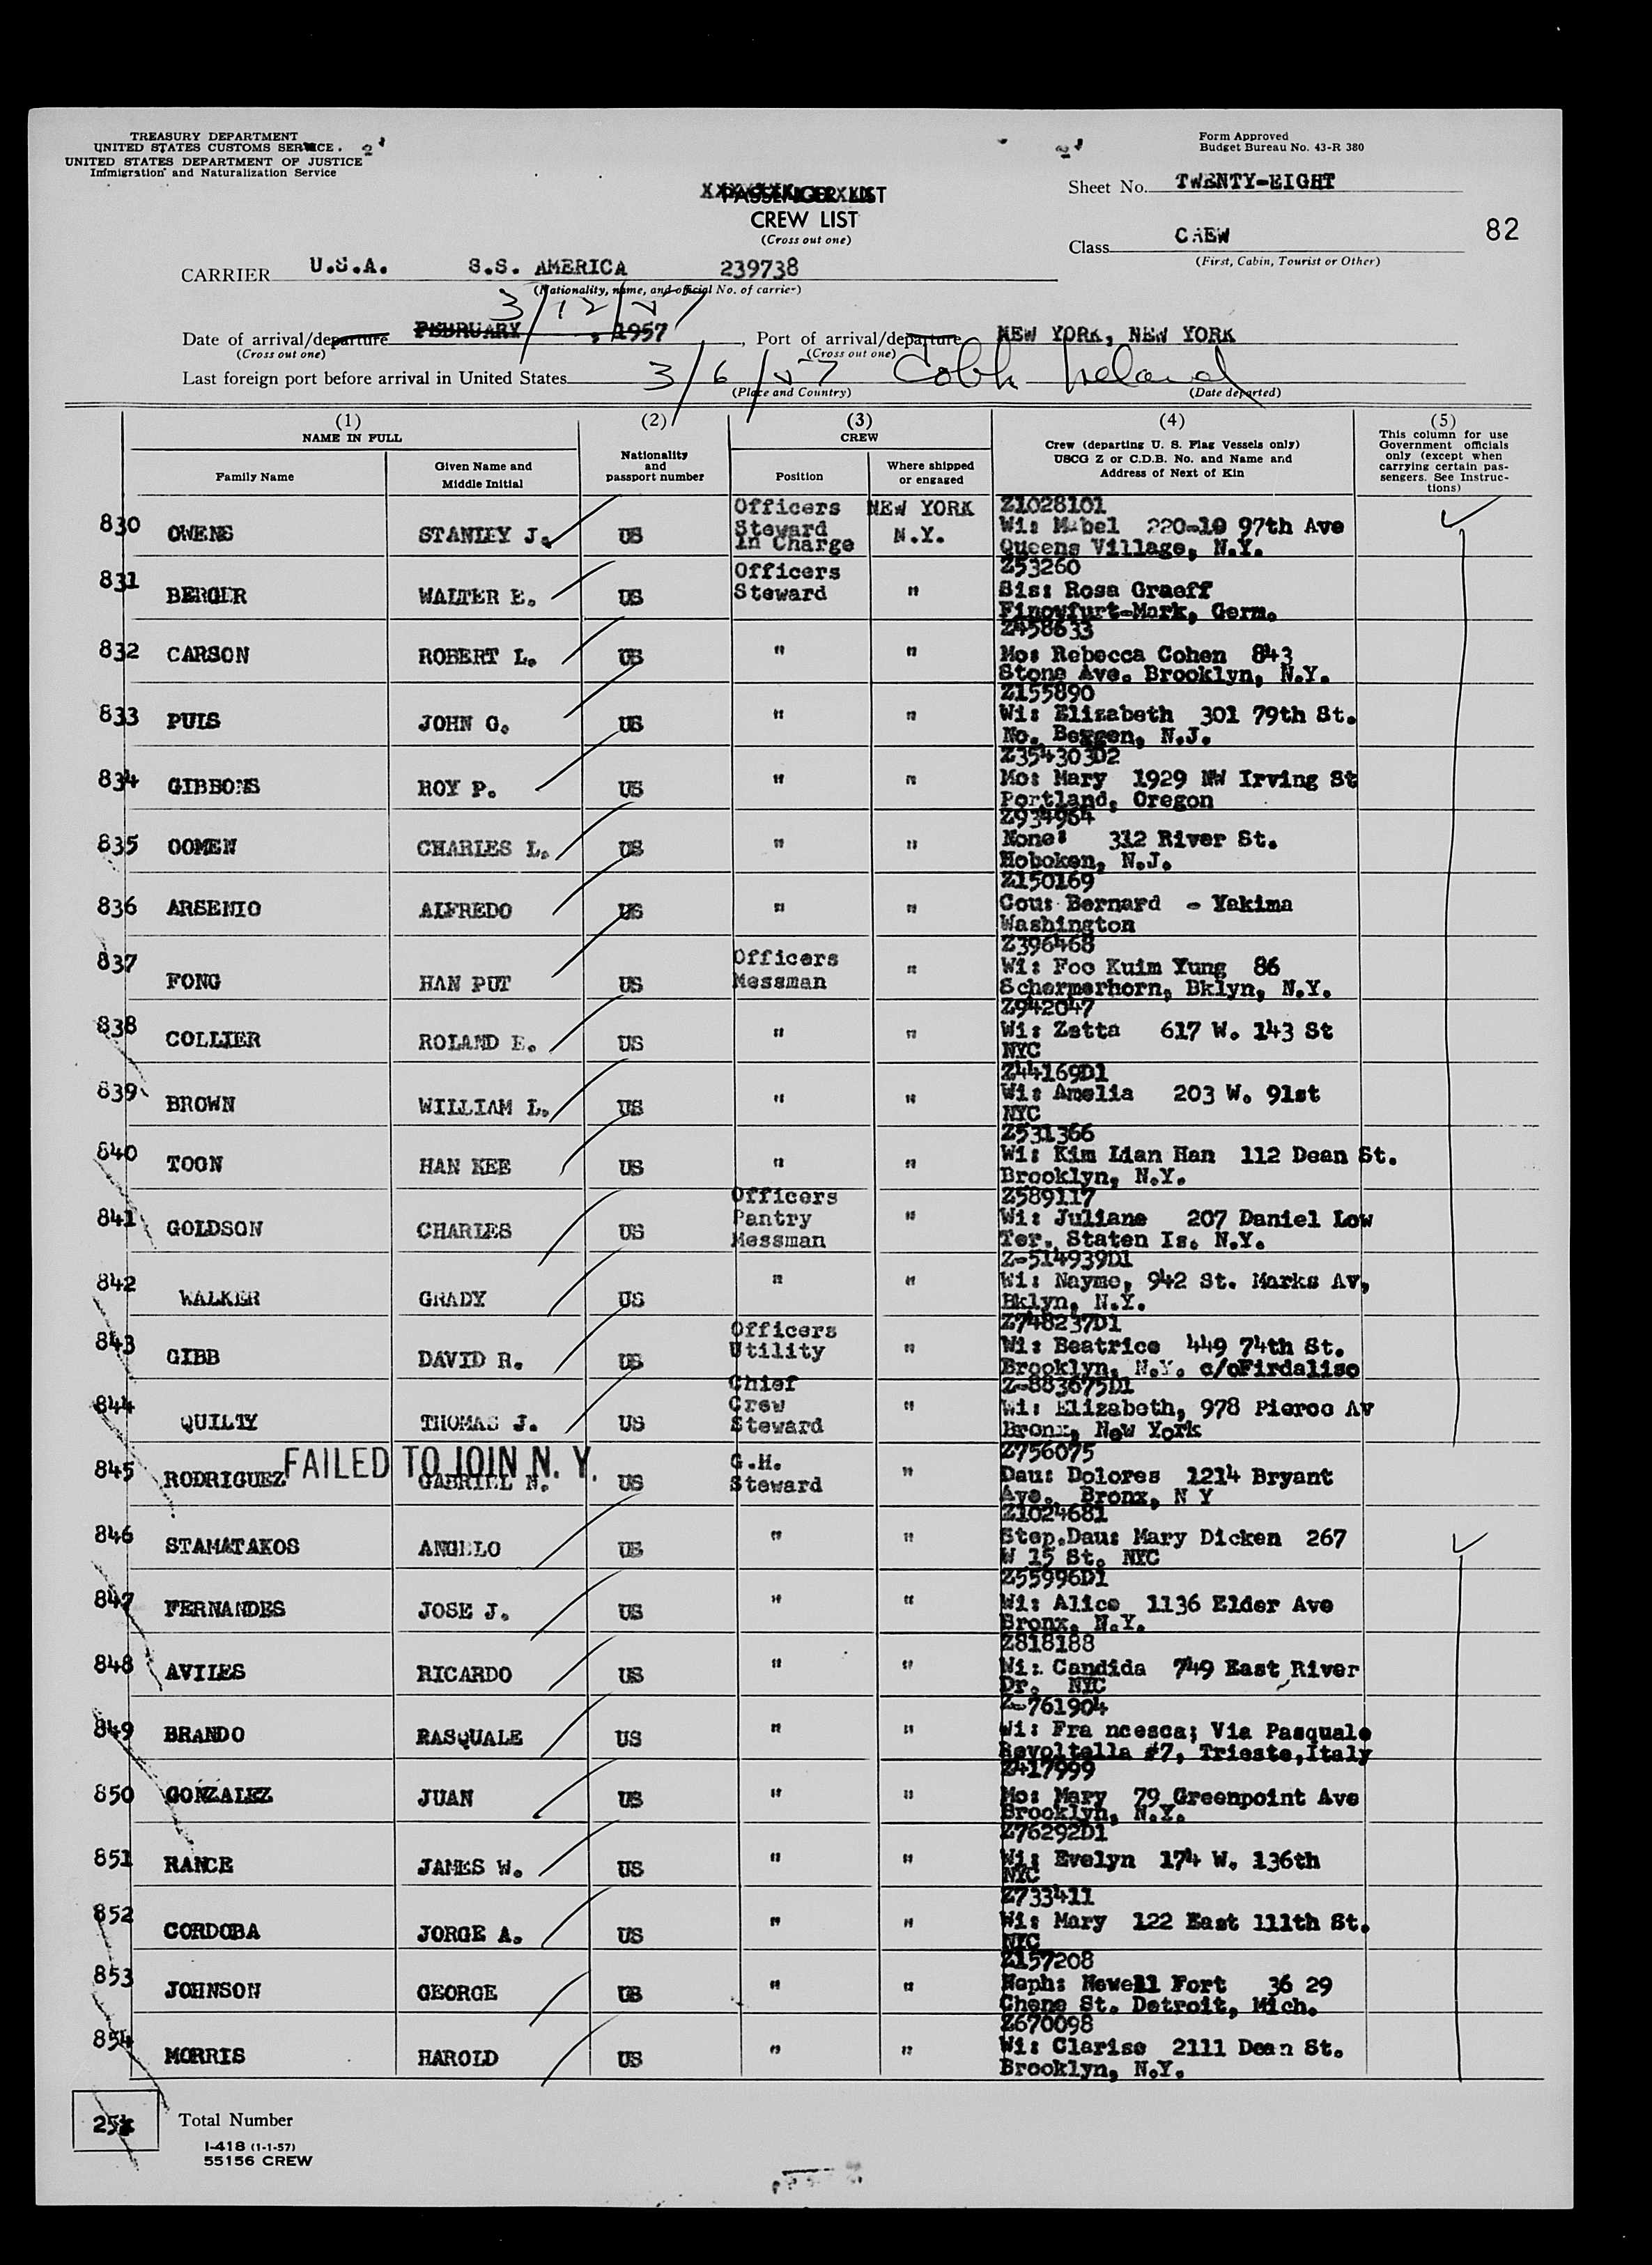 TREASURY DEPARTMENT
UNITED STATES CUSTOMS SERVICE
UNITED STATES DEPARTMENT OF JUSTICE
Immigration and Naturalization Service
Form Approved
Budget Bureau No. 43-R 380
PASSENGER LIST
CREW LIST
(Cross out one)
Sheet No. TWENTY-EIGHT
Class CREW
(First, Cabin, Tourist or Other)
82
CARRIER U.S.A. S.S. AMERICA 239738
(Nationality, name, and official No. of carrier)
3/12/57
Date of arrival/departure FEBRUARY , 1957, Port of arrival/departure NEW YORK, NEW YORK
(Cross out one) (Cross out one)
Last foreign port before arrival in United States 3/6/57 Cobh Ireland
(Place and Country) (Date departed)
(1) NAME IN FULL
Family Name
Given Name and Middle Initial
(2) Nationality and passport number
(3) CREW
Position
Where shipped or engaged
(4) Crew (departing U. S. Flag Vessels only) USCG Z or C.D.B. No. and Name and Address of Next of Kin
(5) This column for use Government officials only (except when carrying certain passengers. See Instructions)
830 OWENS STANLEY J. US Officers Steward In Charge NEW YORK N.Y. Z1028101 Wi: Mabel 220-10 97th Ave Queens Village, N.Y.
831 BERGER WALTER E. US Officers Steward " Z53260 Sis: Rosa Graeff Finowfurt-Mark, Germ.
832 CARSON ROBERT L. US " " Z458633 Mo: Rebecca Cohen 843 Stone Ave. Brooklyn, N.Y.
833 PULS JOHN G. US " " Z155890 Wi: Elizabeth 301 79th St. No. Bergen, N.J.
834 GIBBONS ROY P. US " " Z354303D2 Mo: Mary 1929 NW Irving St Portland, Oregon
835 OOMEN CHARLES L. US " " Z934964 None: 312 River St. Hoboken, N.J.
836 ARSENIO ALFREDO US " " Z150169 Cou: Bernard - Yakima Washington
837 FONG HAN PUT US Officers Messman " Z396468 Wi: Foo Kuim Yung 86 Schermerhorn, Bklyn, N.Y.
838 COLLIER ROLAND E. US " " Z942047 Wi: Zetta 617 W. 143 St NYC
839 BROWN WILLIAM L. US " " Z44169D1 Wi: Amelia 203 W. 91st NYC
840 TOON HAN KEE US " " Z531366 Wi: Kim Lian Han 112 Dean St. Brooklyn, N.Y.
841 GOLDSON CHARLES US Officers Pantry Messman " Z589117 Wi: Juliane 207 Daniel Low Ter. Staten Is. N.Y.
842 WALKER GRADY US " " Z-514939D1 Wi: Nayme, 942 St. Marks Av, Bklyn, N.Y.
843 GIBB DAVID R. US Officers Utility " Z748237D1 Wi: Beatrice 449 74th St. Brooklyn, N.Y. c/oFirdaliso
844 QUILTY THOMAS J. US Chief Crew Steward " Z-883675D1 Wi: Elizabeth, 978 Pierce Av Bronx, New York
FAILED TO JOIN N. Y.
845 RODRIGUEZ GABRIEL N. US G.H. Steward " Z756075 Dau: Dolores 1214 Bryant Ave. Bronx, N Y
846 STAMATAKOS ANGELO US " " Z1024681 Step.Dau: Mary Dicken 267 W 15 St. NYC
847 FERNANDES JOSE J. US " " Z55996D1 Wi: Alice 1136 Elder Ave Bronx, N.Y.
848 AVILES RICARDO US " " Z818188 Wi: Candida 749 East River Dr. NYC
849 BRANDO RASQUALE US " " Z-761904 Wi: Fra ncesca; Via Pasquale Revoltella #7, Trieste,Italy
850 GONZALEZ JUAN US " " Z417999 Mo: Mary 79 Greenpoint Ave Brooklyn, N.Y.
851 RANCE JAMES W. US " " Z76292D1 Wi: Evelyn 174 W. 136th NYC
852 CORDOBA JORGE A. US " " Z733411 Wi: Mary 122 East 111th St. NYC
853 JOHNSON GEORGE US " " Z157208 Neph: Newell Fort 36 29 Chene St. Detroit, Mich.
854 MORRIS HAROLD US " " Z670098 Wi: Clarise 2111 Dean St. Brooklyn, N.Y.
Total Number
I-418 (1-1-57)
55156 CREW